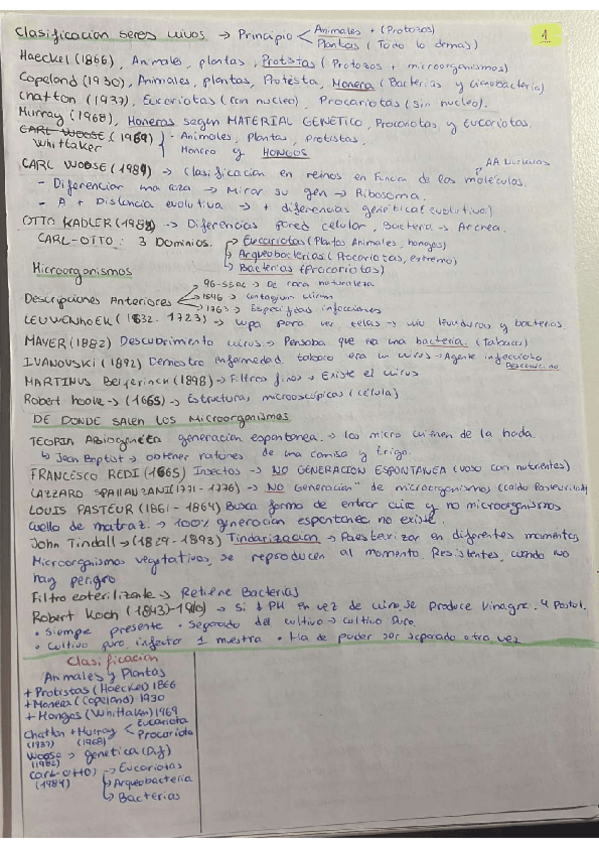 Clasificacion seres vivos → Principio < Animales + (Protozos)
Plantas (Todo lo demas)
1
Haeckel (1866), Animales, plantas, Protistas (Protozos + microorganismos)
Copeland (1930), Animales, plantas, Protésta, Monera (Bacterias y cianobacteria)
Chatton (1937), Eucariotas (con nucleo), Procariotas (sin nucleo).
Murray (1968), Moneras según MATERIAL GENETICO, Procariotas y Eucariotas.
CARL WOOSE (1969) - Animales, Plantas, Protistas.
Whittaker Monero y HONGOS
CARL WOOSE (1984) → Clasificación en reinos en Función de las moléculas.
- Diferenciar una raza → Mirar su gen → Ribosoma.
- A + Distancia evolutiva → + diferencias genética (evolutivo)
OTTO KADLER (1982) → Diferencias pared celular, Bacteria → Archea.
CARL-OTTO: 3 Dominios. → Eucariotas (Plantas Animales, hongos)
→ Arqueobacterias (Procariotas, extremo)
→ Bacterias (Procariotas)
Microorganismos
96-55ac → De rara naturaleza
Descripciones Anteriores → 1546 → Contagium vivum
→ 1763 → Especificas infecciones
LEUWENHOEK (1632-1723) → Lupa para ver telas → vio levaduras y bacterias
MAYER (1882) Descubrimento virus → Pensaba que no una bacteria. (Tabaco)
IVANOVSKI (1892) Demostro enfermedad tabaco era un virus → Agente infeccioso
Desconocido
MARTINUS Beijerinck (1898) → Filtros finos → Existe el virus
Robert hooke → (1665) → Estructuras microoscópicas (célula)
DE DONDE SALEN LOS Microorganismos
TEORIA Abiogenéta generacion espontanea. → los micro vienen de la nada.
↳ Jean Baptist → obtener ratones de una camisa y trigo.
FRANCESCO REDI (1665) Insectos → NO GENERACION ESPONTANEA (vaso con nutrientes)
LAZZARO SPALLANZANI (1771-1776) → NO Generacion" de microorganismos (caldo Pasteurizado)
LOUIS PASTÉUR (1861-1864) Busca forma de entrar aire y no microorganismos
Cuello de matraz. → 100% generacion espontanea no existe.
John Tindall → (1829-1893) Tindarizacion → Paesterizar en diferentes momentos
Microorgnismos vegetativos, se reproducen al momento. Resistentes, cuando no
hay peligro
Filtro esterilizante → Retiene Bacterias
Robert Koch (1843)-1910) → Si ↓ PH en vez de vino, se produce vinagre. 4 Postul.
• Siempre presente • Separado del cultivo → cultivo puro.
• Cultivo puro, infectar 1 muestra • Ha de poder ser separado otra vez
Clasificación
Animales y Plantas
+ Protistas (Haeckel) 1866
+ Monera (Copeland) 1930
+ Hongos (Whittaker) 1969
Chatton + Murray < Eucariota
(1937) (1968) Procariota
Woose → genética (Dif)
(1982)
Carl-OTTO) → Eucariotas
(1984) → Arqueobacteria
↳ Bacterias